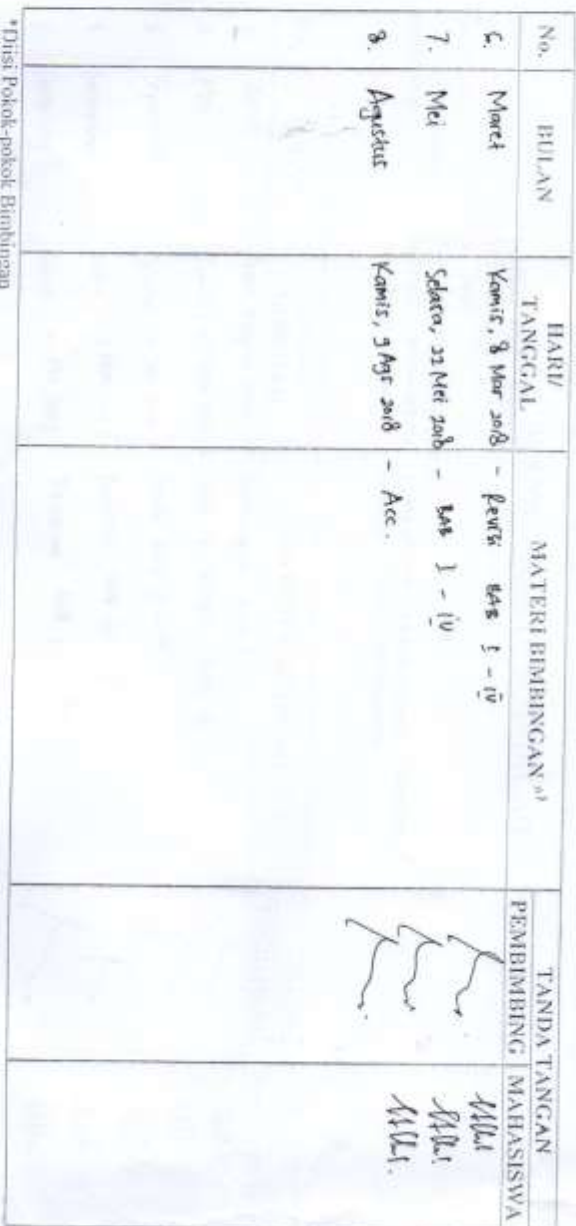 No. BULAN HARI/ TANGGAL MATERI BIMBINGAN *) TANDA TANGAN
PEMBIMBING MAHASISWA
6. Maret Kamis, 8 Mar 2018 - Revisi BAB I - IV
7. Mei Selasa, 22 Mei 2018 - BAB I - IV
8. Agustus Kamis, 9 Ags 2018 - Acc.
*Diisi Pokok-pokok Bimbingan